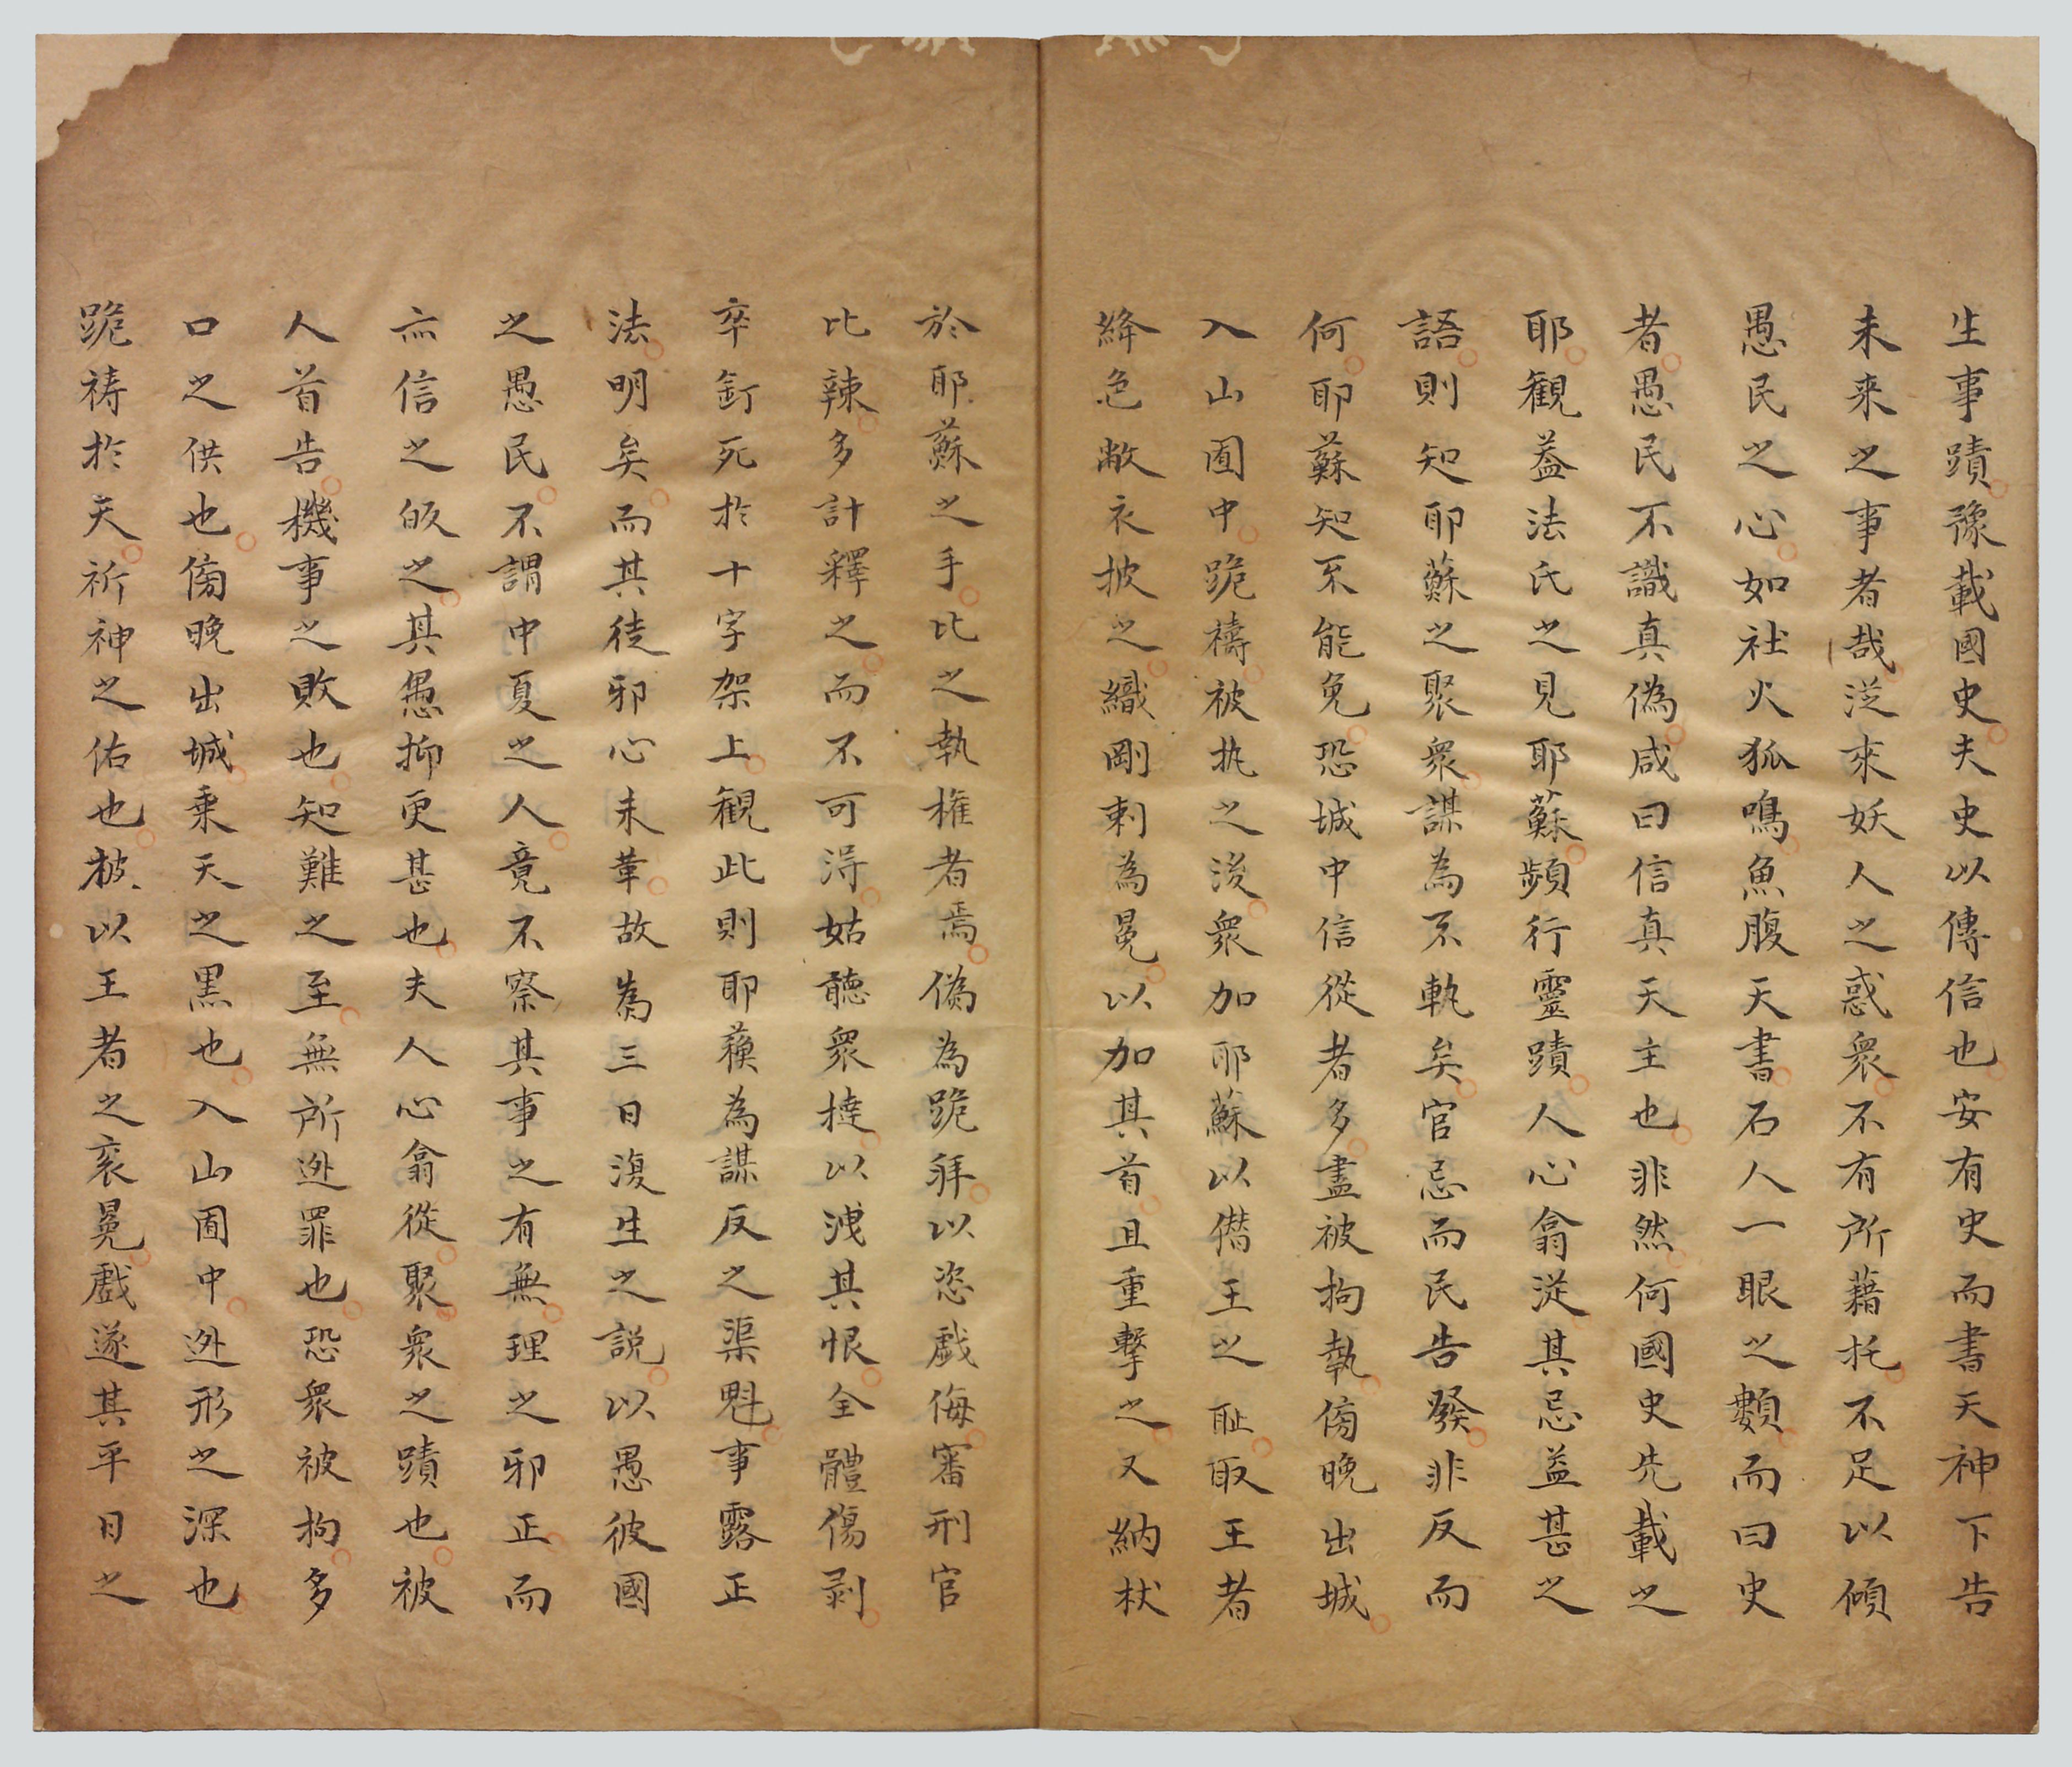 生事蹟豫載國史夫史以傳信也安有史而書天神下告
未来之事者哉從來妖人之惑衆不有所藉托不足以傾
愚民之心如社火狐鳴魚腹天書石人一眼之類而曰史
者愚民不識真偽咸曰信真天主也非然何國史先載之
耶觀蓋法氏之見耶蘇頻行靈蹟人心翕從其忌益甚之
語則知耶蘇之聚衆謀為不軌矣官忌而民告發非反而
何耶蘇知不能免恐城中信從者多盡被拘執傍晚出城
入山囿中跪禱被执之後衆加耶蘇以僭王之耻取王者
絳色敝衣披之織剛刺為冕以加其首且重擊之又納杖
於耶蘇之手比之執權者焉偽為跪拜以恣戯侮審刑官
比辣多計釋之而不可淂姑聽衆撻以洩其恨全體傷剥
卒釘死於十字架上觀此則耶蘓為謀反之渠魁事露正
法明矣而其徒邪心未革故為三日復生之説以愚彼國
之愚民不謂中夏之人竟不察其事之有無理之邪正而
亦信之皈之其愚抑更甚也夫人心翕從聚衆之蹟也被
人首告機事之敗也知難之至無所迯罪也恐衆被拘多
口之供也傍晚出城乗天之黒也入山囿中迯形之深也
跪祷扵天祈神之佑也披以王者之衮冕戲遂其平日之